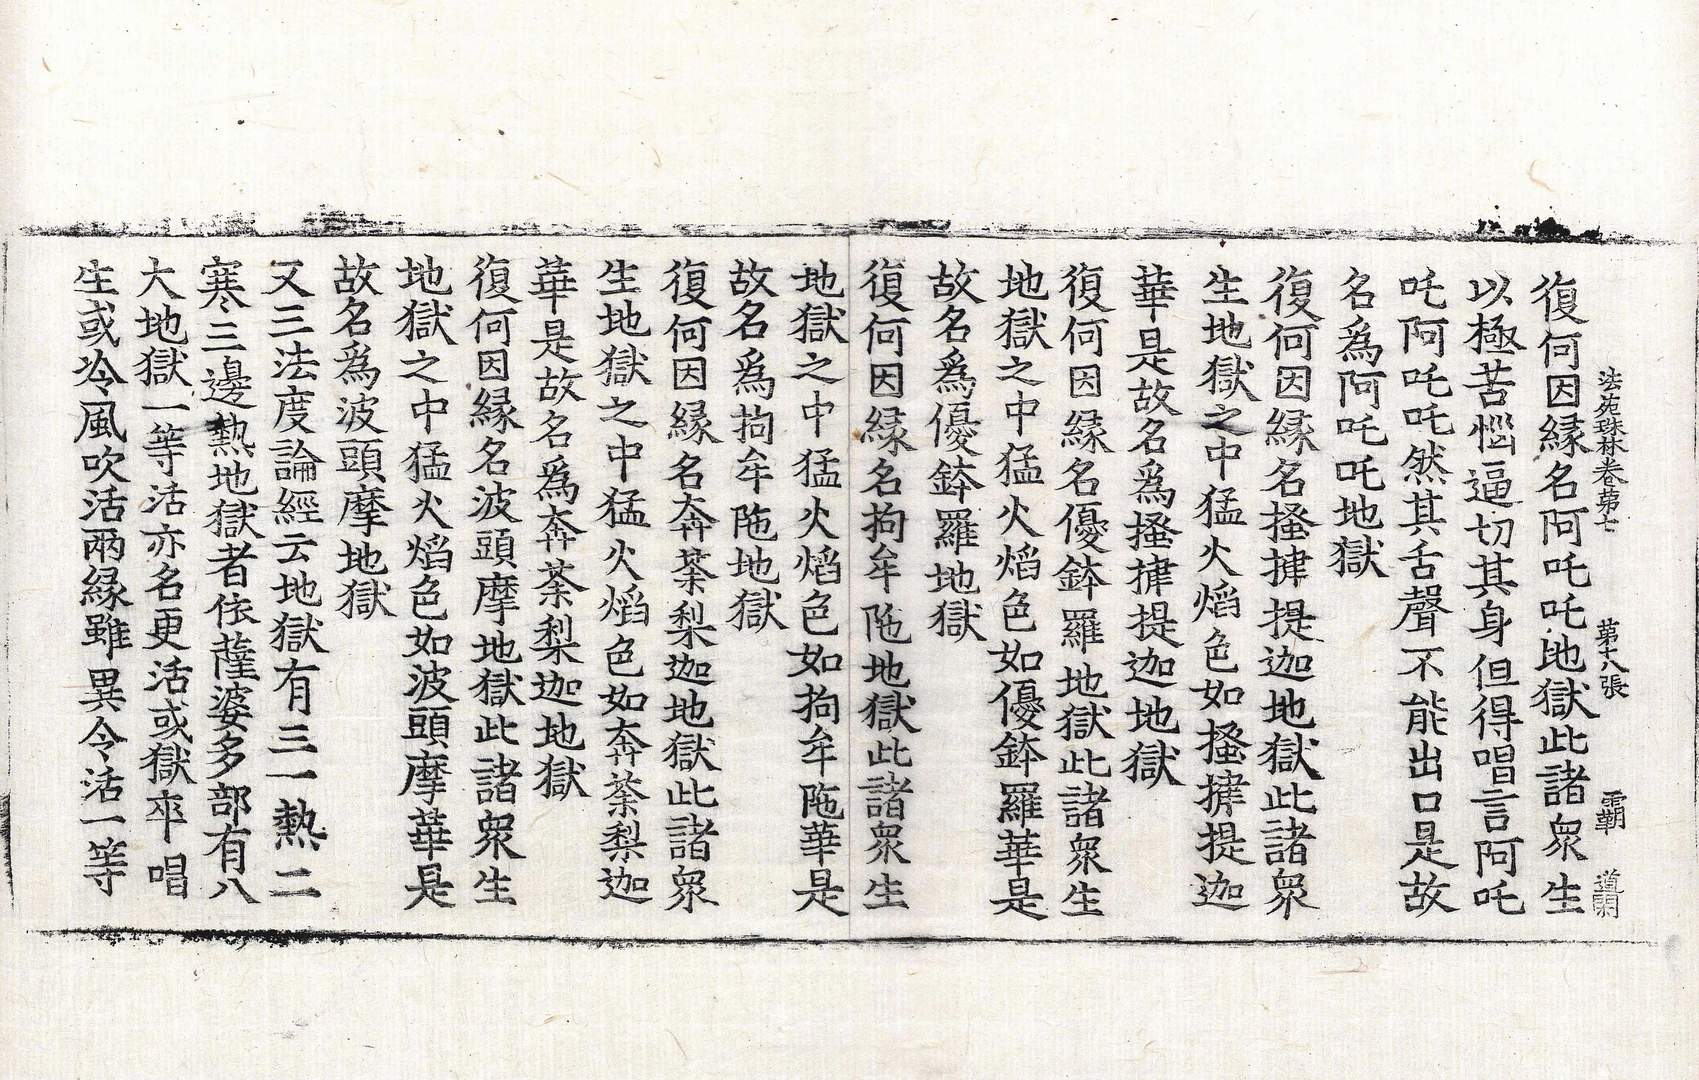 法苑珠林卷第七 第十八張 霸 道閑
復何因緣名阿吒吒地獄此諸眾生
以極苦惱逼切其身但得唱言阿吒
吒阿吒吒然其舌聲不能出口是故
名爲阿吒吒地獄
復何因緣名搔揵提迦地獄此諸眾
生地獄之中猛火焰色如搔揵提迦
華是故名爲搔揵提迦地獄
復何因緣名優鉢羅地獄此諸眾生
地獄之中猛火焰色如優鉢羅華是
故名爲優鉢羅地獄
復何因緣名拘牟陁地獄此諸眾生
地獄之中猛火焰色如拘牟陁華是
故名爲拘牟陁地獄
復何因緣名奔荼梨迦地獄此諸眾
生地獄之中猛火焰色如奔荼梨迦
華是故名爲奔荼梨迦地獄
復何因緣名波頭摩地獄此諸眾生
地獄之中猛火焰色如波頭摩華是
故名爲波頭摩地獄
又三法度論經云地獄有三一熱二
寒三邊熱地獄者依薩婆多部有八
大地獄一等活亦名更活或獄卒唱
生或冷風吹活兩緣雖異令活一等